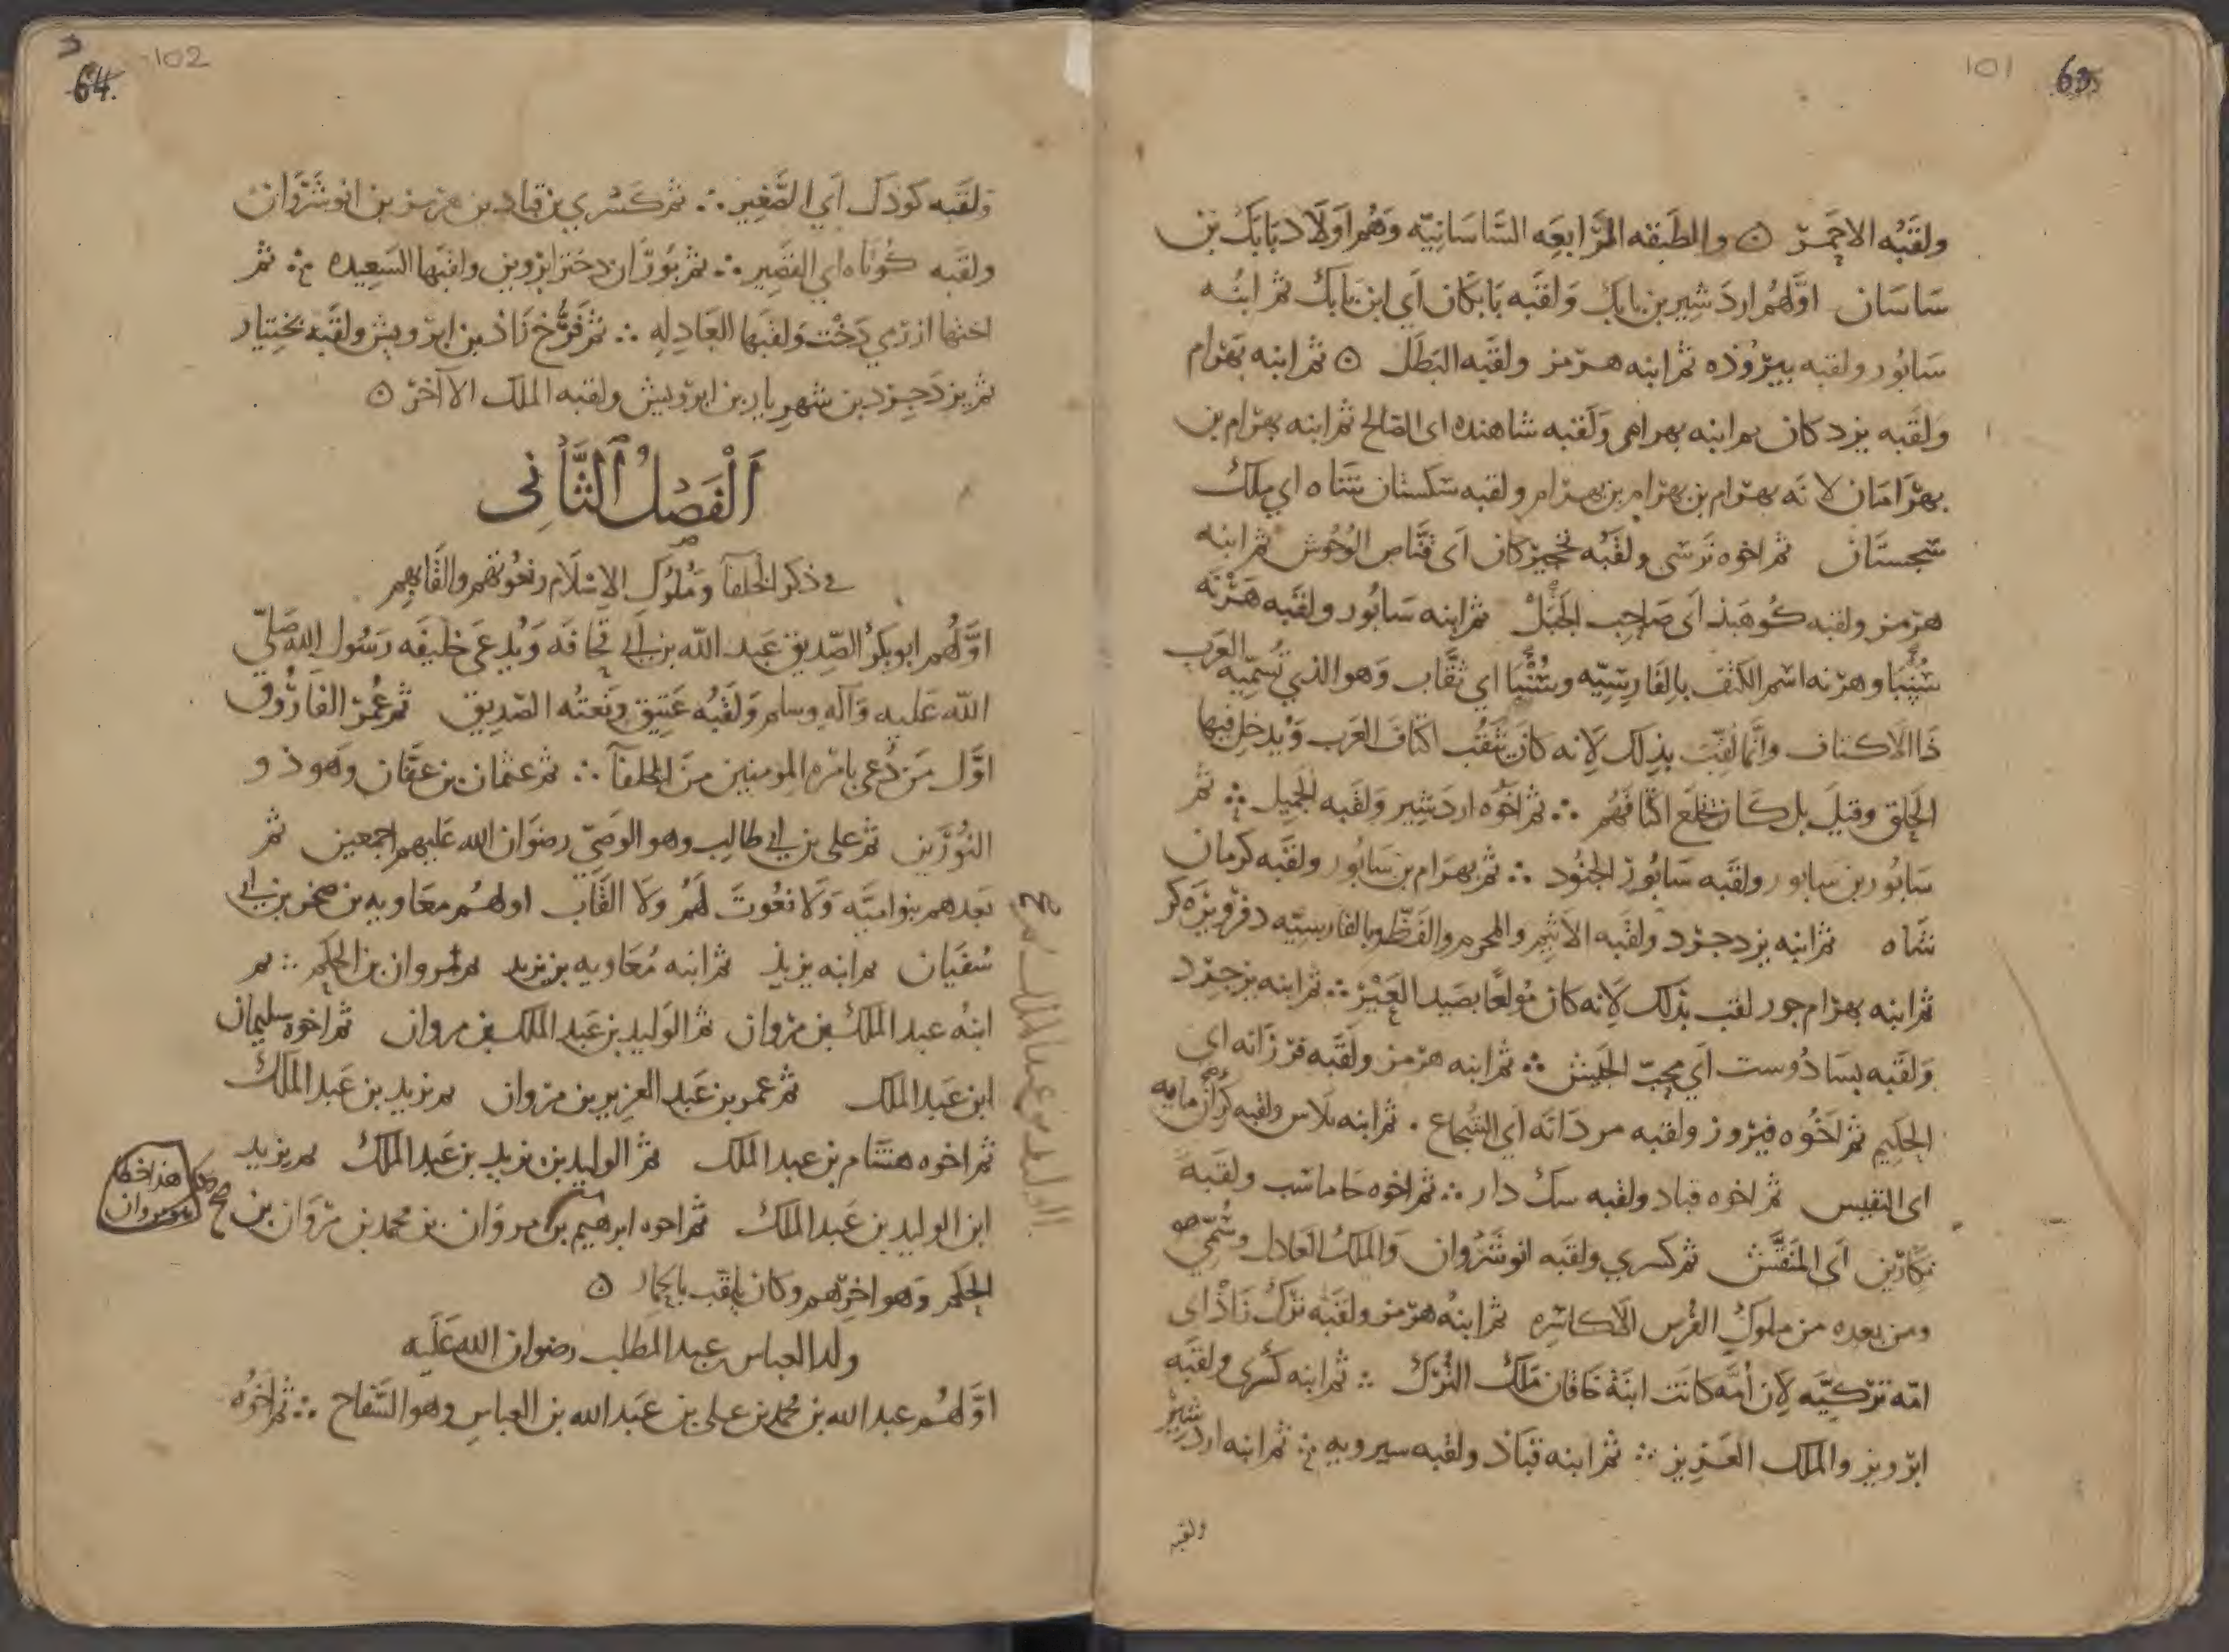 101 63
ولقبه الاحمر ۞ والطبقه الرابعه الساسانيه وهم اولاد بابك بن
ساسان اولهم اردشير بن بابك ولقبه بابكان اي ابن بابك ثم ابنه
سابور ولقبه بيروذه ثم ابنه هرمز ولقبه البطل ۞ ثم ابنه بهرام
ولقبه يزدكان ثم ابنه بهرام ولقبه شاهنده اى الصالح ثم ابنه بهرام بن
بهرامان لانه بهرام بن بهرام بن بهرام ولقبه سكستان شاه اي ملك
سجستان ثم اخوه نرسى ولقبه نخجيركان اى قناص الوحوش ثم ابنه
هرمز ولقبه كوهبذ اى صاحب الجبل ثم ابنه سابور ولقبه هزنه
سنبا وهزنه اسم الكتف بالفارسيه وسنبا اي نقاب وهو الذي تسميه العرب
ذا الاكتاف وانما لقب بذلك لانه كان ينقب اكتاف العرب ويدخل فيها
الحلق وقيل بل كان يخلع اكتافهم ∴ ثم اخوه اردشير ولقبه الجميل ∴ ثم
سابور بن سابور ولقبه سابور الجنود ∴ ثم بهرام بن سابور ولقبه كرمان
شاه ثم ابنه يزدجرد ولقبه الاثيم والمجرم والفظ وبالفارسيه دفر وبزه كر
ثم ابنه بهرام جور لقب بذلك لانه كان مولعا بصيد العير ∴ ثم ابنه يزدجرد
ولقبه بسادوست اي محب الجيش ∴ ثم ابنه هرمز ولقبه فرزانه اى
الحكيم ثم اخوه فيروز ولقبه مردانه اي الشجاع . ثم ابنه بلاس ولقبه كران مايه
اى النفيس ثم اخوه قباد ولقبه سك دار ∴ ثم اخوه جاماسب ولقبه
نكارين اى المنقش ثم كسري ولقبه انوشروان والملك العادل وسمي هو
ومن بعده من ملوك الفرس الاكاسره ثم ابنه هرمز ولقبه ترك زاذ اى
امه تركيه لان امه كانت ابنة خاقان ملك الترك ∴ ثم ابنه كسرى ولقبه
ابرويز والملك العزيز ∴ ثم ابنه قباذ ولقبه سيرويه ∴ ثم ابنه اردشير
ولقبه
102 64
ولقبه كودك اي الصغير ∴ ثم كسري بن قباد بن هرمز بن انوشروان
ولقبه كوتاه اي القصير ∴ ثم بوران دخت ابرويز ولقبها السعيده ∴ ثم
اختها ازرمي دخت ولقبها العادله ∴ ثم فرخ زاذ بن ابرويش ولقبه بختيار
ثم يزدجرد بن شهريار بن ابرويش ولقبه الملك الآخر ۞
الفصل الثانى
في ذكر الخلفا وملوك الاسلام ونعوتهم والقابهم
اولهم ابو بكر الصديق عبد الله بن ابي قحافه ويدعى خليفه رسول الله صلى
الله عليه وآله وسلم ولقبه عتيق ونعته الصديق ثم عمر الفاروق
اول من دعي بامره المومنين من الخلفآ ∴ ثم عثمان بن عفان وهو ذو
النورين ثم على بن ابي طالب وهو الوصي رضوان الله عليهم اجمعين ثم
بعدهم بنو اميه ولا نعوت لهم ولا القاب اولهم معاويه بن صخر بن ابي
سفيان ثم ابنه يزيد ثم ابنه معاويه بن يزيد ثم مروان بن الحكم ∴ ثم
ابنه عبد الملك بن مروان ثم الوليد بن عبد الملك بن مروان ثم اخوه سليمان
ابن عبد الملك ثم عمر بن عبد العزيز بن مروان ثم يزيد بن عبد الملك
ثم اخوه هشام بن عبد الملك ثم الوليد بن يزيد بن عبد الملك ثم يزيد
ابن الوليد بن عبد الملك ثم اخوه ابرهيم بن مروان بن محمد بن مروان بن
هذا خطا
مروان
صح
الحكم وهو اخرهم وكان يلقب بالحمار ۞
ولد العباس عبد المطلب رضوان الله عليه
اولهم عبد الله بن محمد بن على بن عبد الله بن العباس وهو السفاح ∴ ثم اخوه